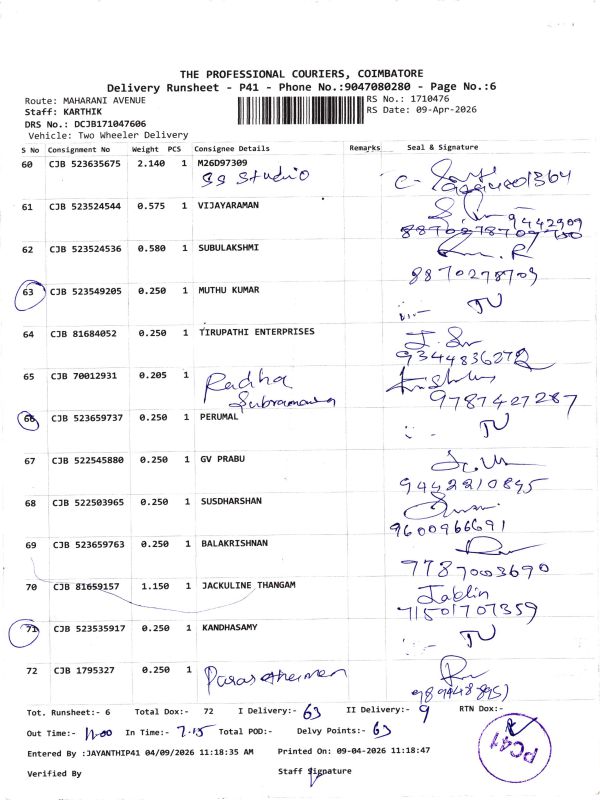 THE PROFESSIONAL COURIERS, COIMBATORE
Delivery Runsheet - P41 - Phone No.:9047080280 - Page No.:6
Route: MAHARANI AVENUE RS No.: 1710476
Staff: KARTHIK RS Date: 09-Apr-2026
DRS No.: DCJB171047606
Vehicle: Two Wheeler Delivery
S No Consignment No Weight PCS Consignee Details Remarks Seal & Signature
60 CJB 523635675 2.140 1 M26D97309
SS Studio
61 CJB 523524544 0.575 1 VIJAYARAMAN
62 CJB 523524536 0.580 1 SUBULAKSHMI
8870278709
63 CJB 523549205 0.250 1 MUTHU KUMAR
64 CJB 81684052 0.250 1 TIRUPATHI ENTERPRISES
9344836272
65 CJB 70012931 0.205 1 Radha
9787427287
66 CJB 523659737 0.250 1 PERUMAL
67 CJB 522545880 0.250 1 GV PRABU
9442210845
68 CJB 522503965 0.250 1 SUSDHARSHAN
9600966691
69 CJB 523659763 0.250 1 BALAKRISHNAN
7787003690
70 CJB 81659157 1.150 1 JACKULINE THANGAM
Jaklin
71501707359
71 CJB 523535917 0.250 1 KANDHASAMY
72 CJB 1795327 0.250 1
Tot. Runsheet:- 6 Total Dox:- 72 I Delivery:- 63 II Delivery:- 9 RTN Dox:-
Out Time:- 11.00 In Time:- 7.15 Total POD:- Delvy Points:- 63
Entered By :JAYANTHIP41 04/09/2026 11:18:35 AM Printed On: 09-04-2026 11:18:47
Verified By Staff Signature
PC41